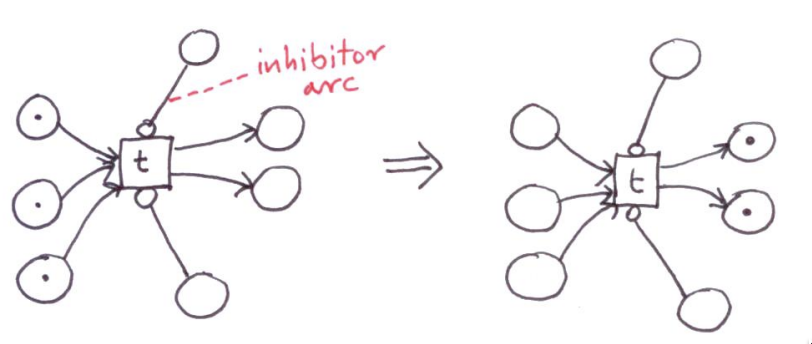 inhibitor
arc
t
t